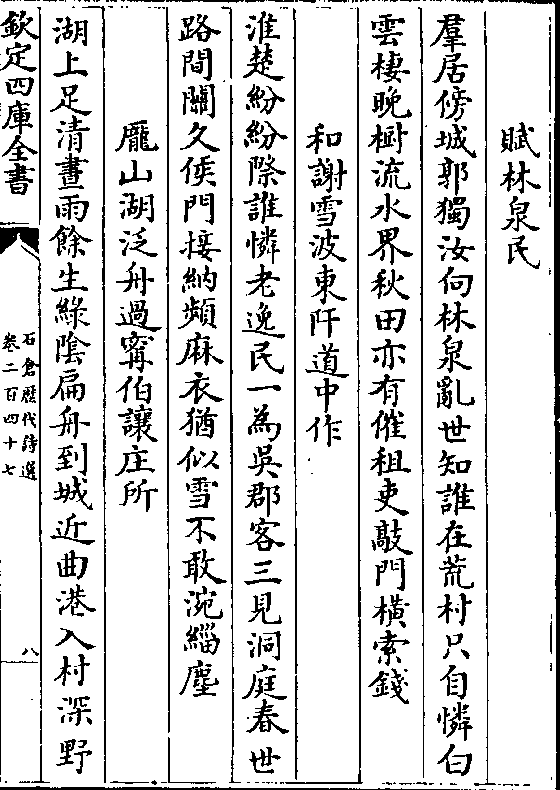 賦林泉民
羣居傍城郭獨汝向林泉亂世知誰在荒村只自憐白
雲棲晚樹流水界秋田亦有催租吏敲門橫索錢
和謝雪波東阡道中作
淮楚紛紛際誰憐老逸民一為吳郡客三見洞庭春世
路間關久侯門接納頻麻衣猶似雪不敢涴緇塵
龎山湖泛舟過甯伯讓庄所
湖上足清晝雨餘生綠陰扁舟到城近曲港入村深野
欽定四庫全書
石倉歷代詩選
卷二百四十七
八